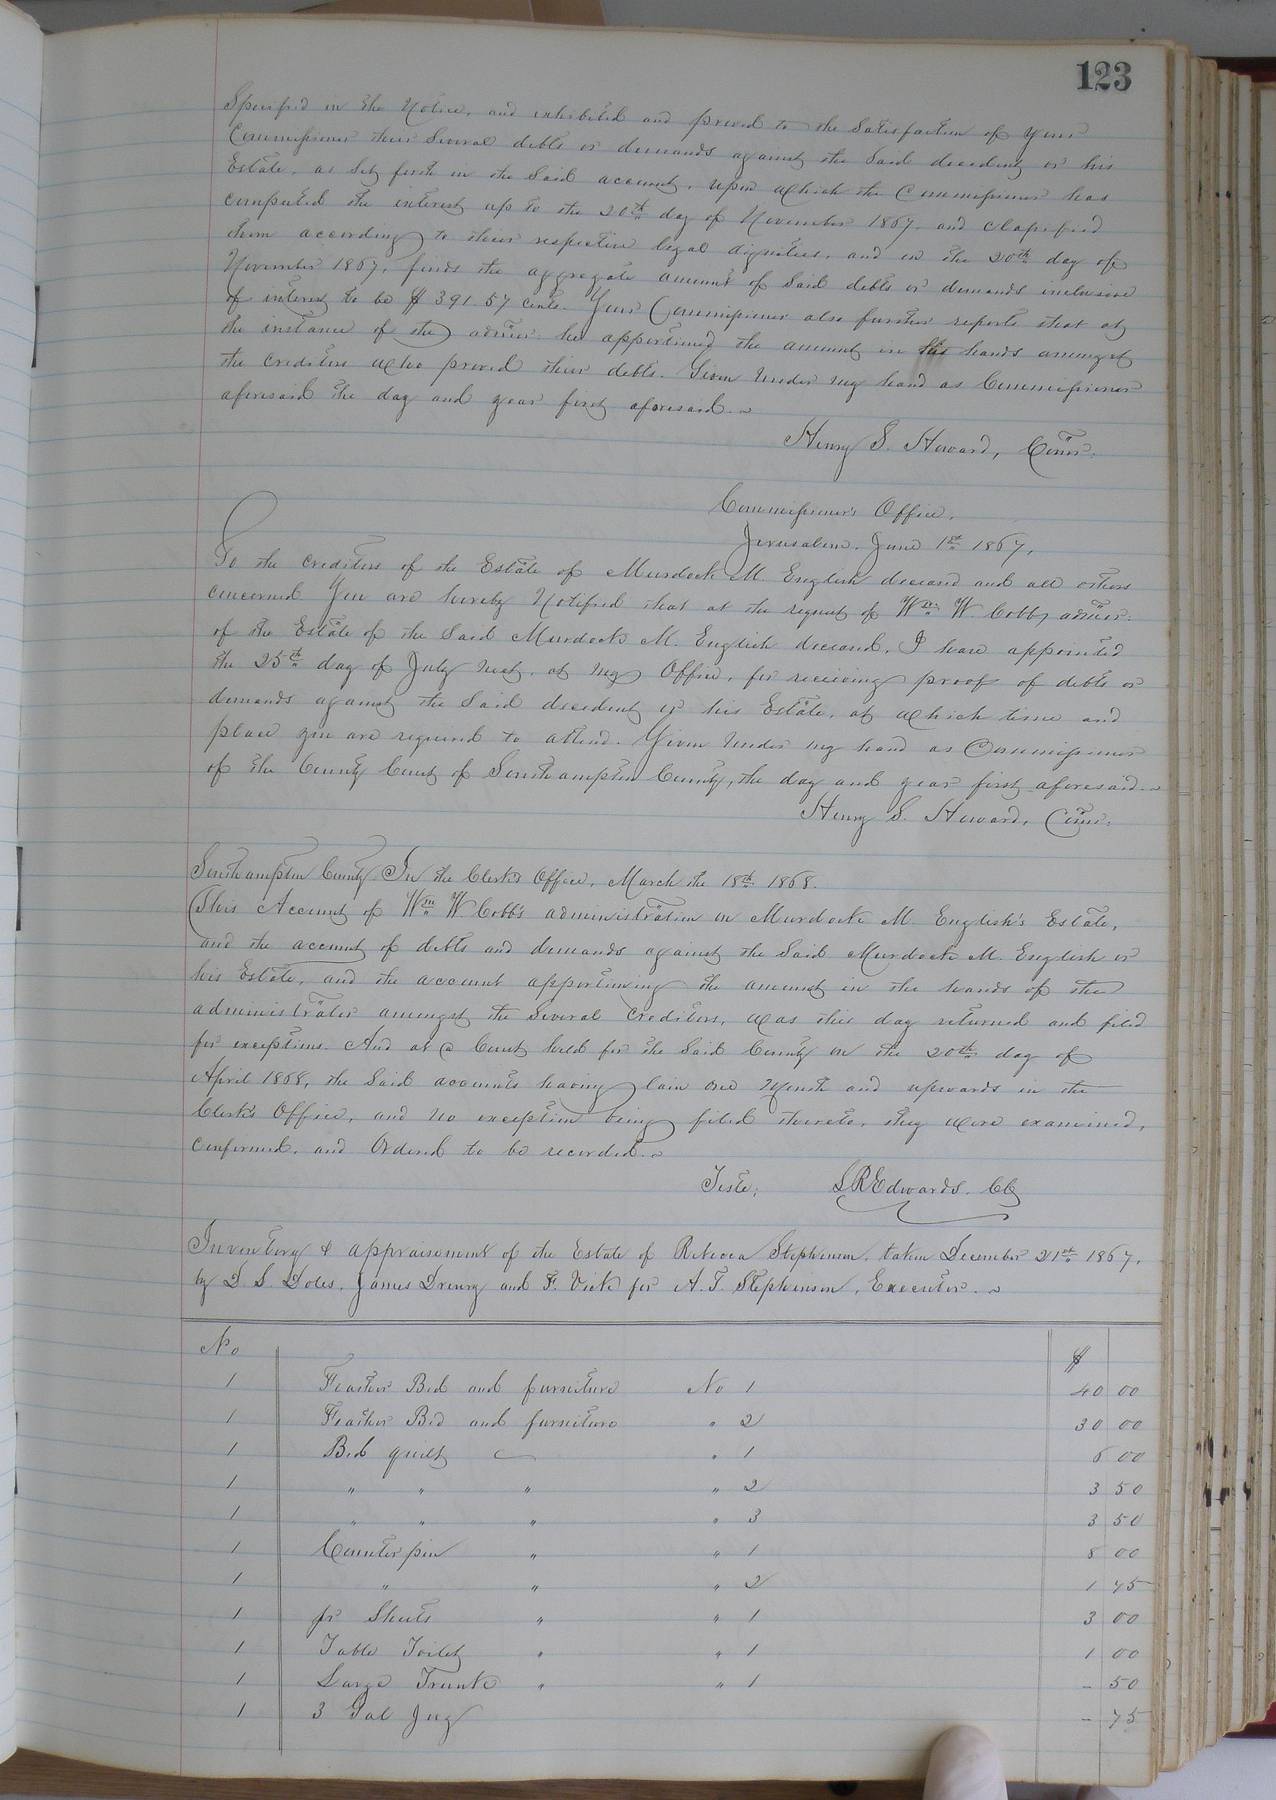 123
Specified in the Notice, and exhibited and proved to the Satisfaction of your
Commissioner their Several debts or demands against the Said decedent or his
Estate, as Set forth in the Said account, upon which the Commissioner has
computed the interest up to the 20th day of November 1867, and classified
them according to their respective legal dignities, and on the 20th day of
November 1867, finds the aggregate amount of Said debts or demands inclusive
of interest to be $391 57 cents. Your Commissioner also further reports that at
the instance of the admor. he apportioned the amount in his hands amongst
the creditors who proved their debts. Given Under my hand as Commissioner
aforesaid the day and year first aforesaid.
Henry S. Howard, Comr.
Commissioner's Office,
Jerusalem, June 1st 1867.
To the creditors of the Estate of Murdock M. English deceased and all others
concerned You are hereby Notified that at the request of Wm W. Cobb, admor.
of the Estate of the Said Murdock M. English deceased, I have appointed
the 25th day of July next, at my Office, for receiving proof of debts or
demands against the Said decedent or his Estate, at which time and
place you are required to attend. Given Under my hand as Commissioner
of the County Court of Southampton County, the day and year first aforesaid.
Henry S. Howard, Comr.
Southampton County. In the Clerk's Office, March the 18th 1868.
This Account of Wm W Cobb's administration on Murdock M. English's Estate,
and the account of debts and demands against the Said Murdock M. English or
his Estate, and the account apportioning the amount in the hands of the
administrator amongst the Several Creditors, was this day returned and filed
for exceptions. And at a Court held for the Said County on the 20th day of
April 1868, the Said accounts having lain one Month and upwards in the
Clerk's Office, and no exception being filed thereto, they were examined,
confirmed, and Ordered to be recorded.
Teste, L R Edwards. CC
Inventory & appraisement of the Estate of Rebecca Stephenson, taken December 21st 1867,
by D. S. Doles, James Drewry and F. Vick for A. T. Stephenson, Executor.
No $
1 Feather Bed and furniture No 1 40 00
1 Feather Bed and furniture " 2 30 00
1 Bed quilt " 1 6 00
1 " " " " 2 3 50
1 " " " " 3 3 50
1 Counter pin " " 1 8 00
1 " " " 2 1 75
1 pr Sheets " " 1 3 00
1 Table Toilet " " 1 1 00
1 Large Trunk " " 1 - 50
1 3 Gal Jug - 75